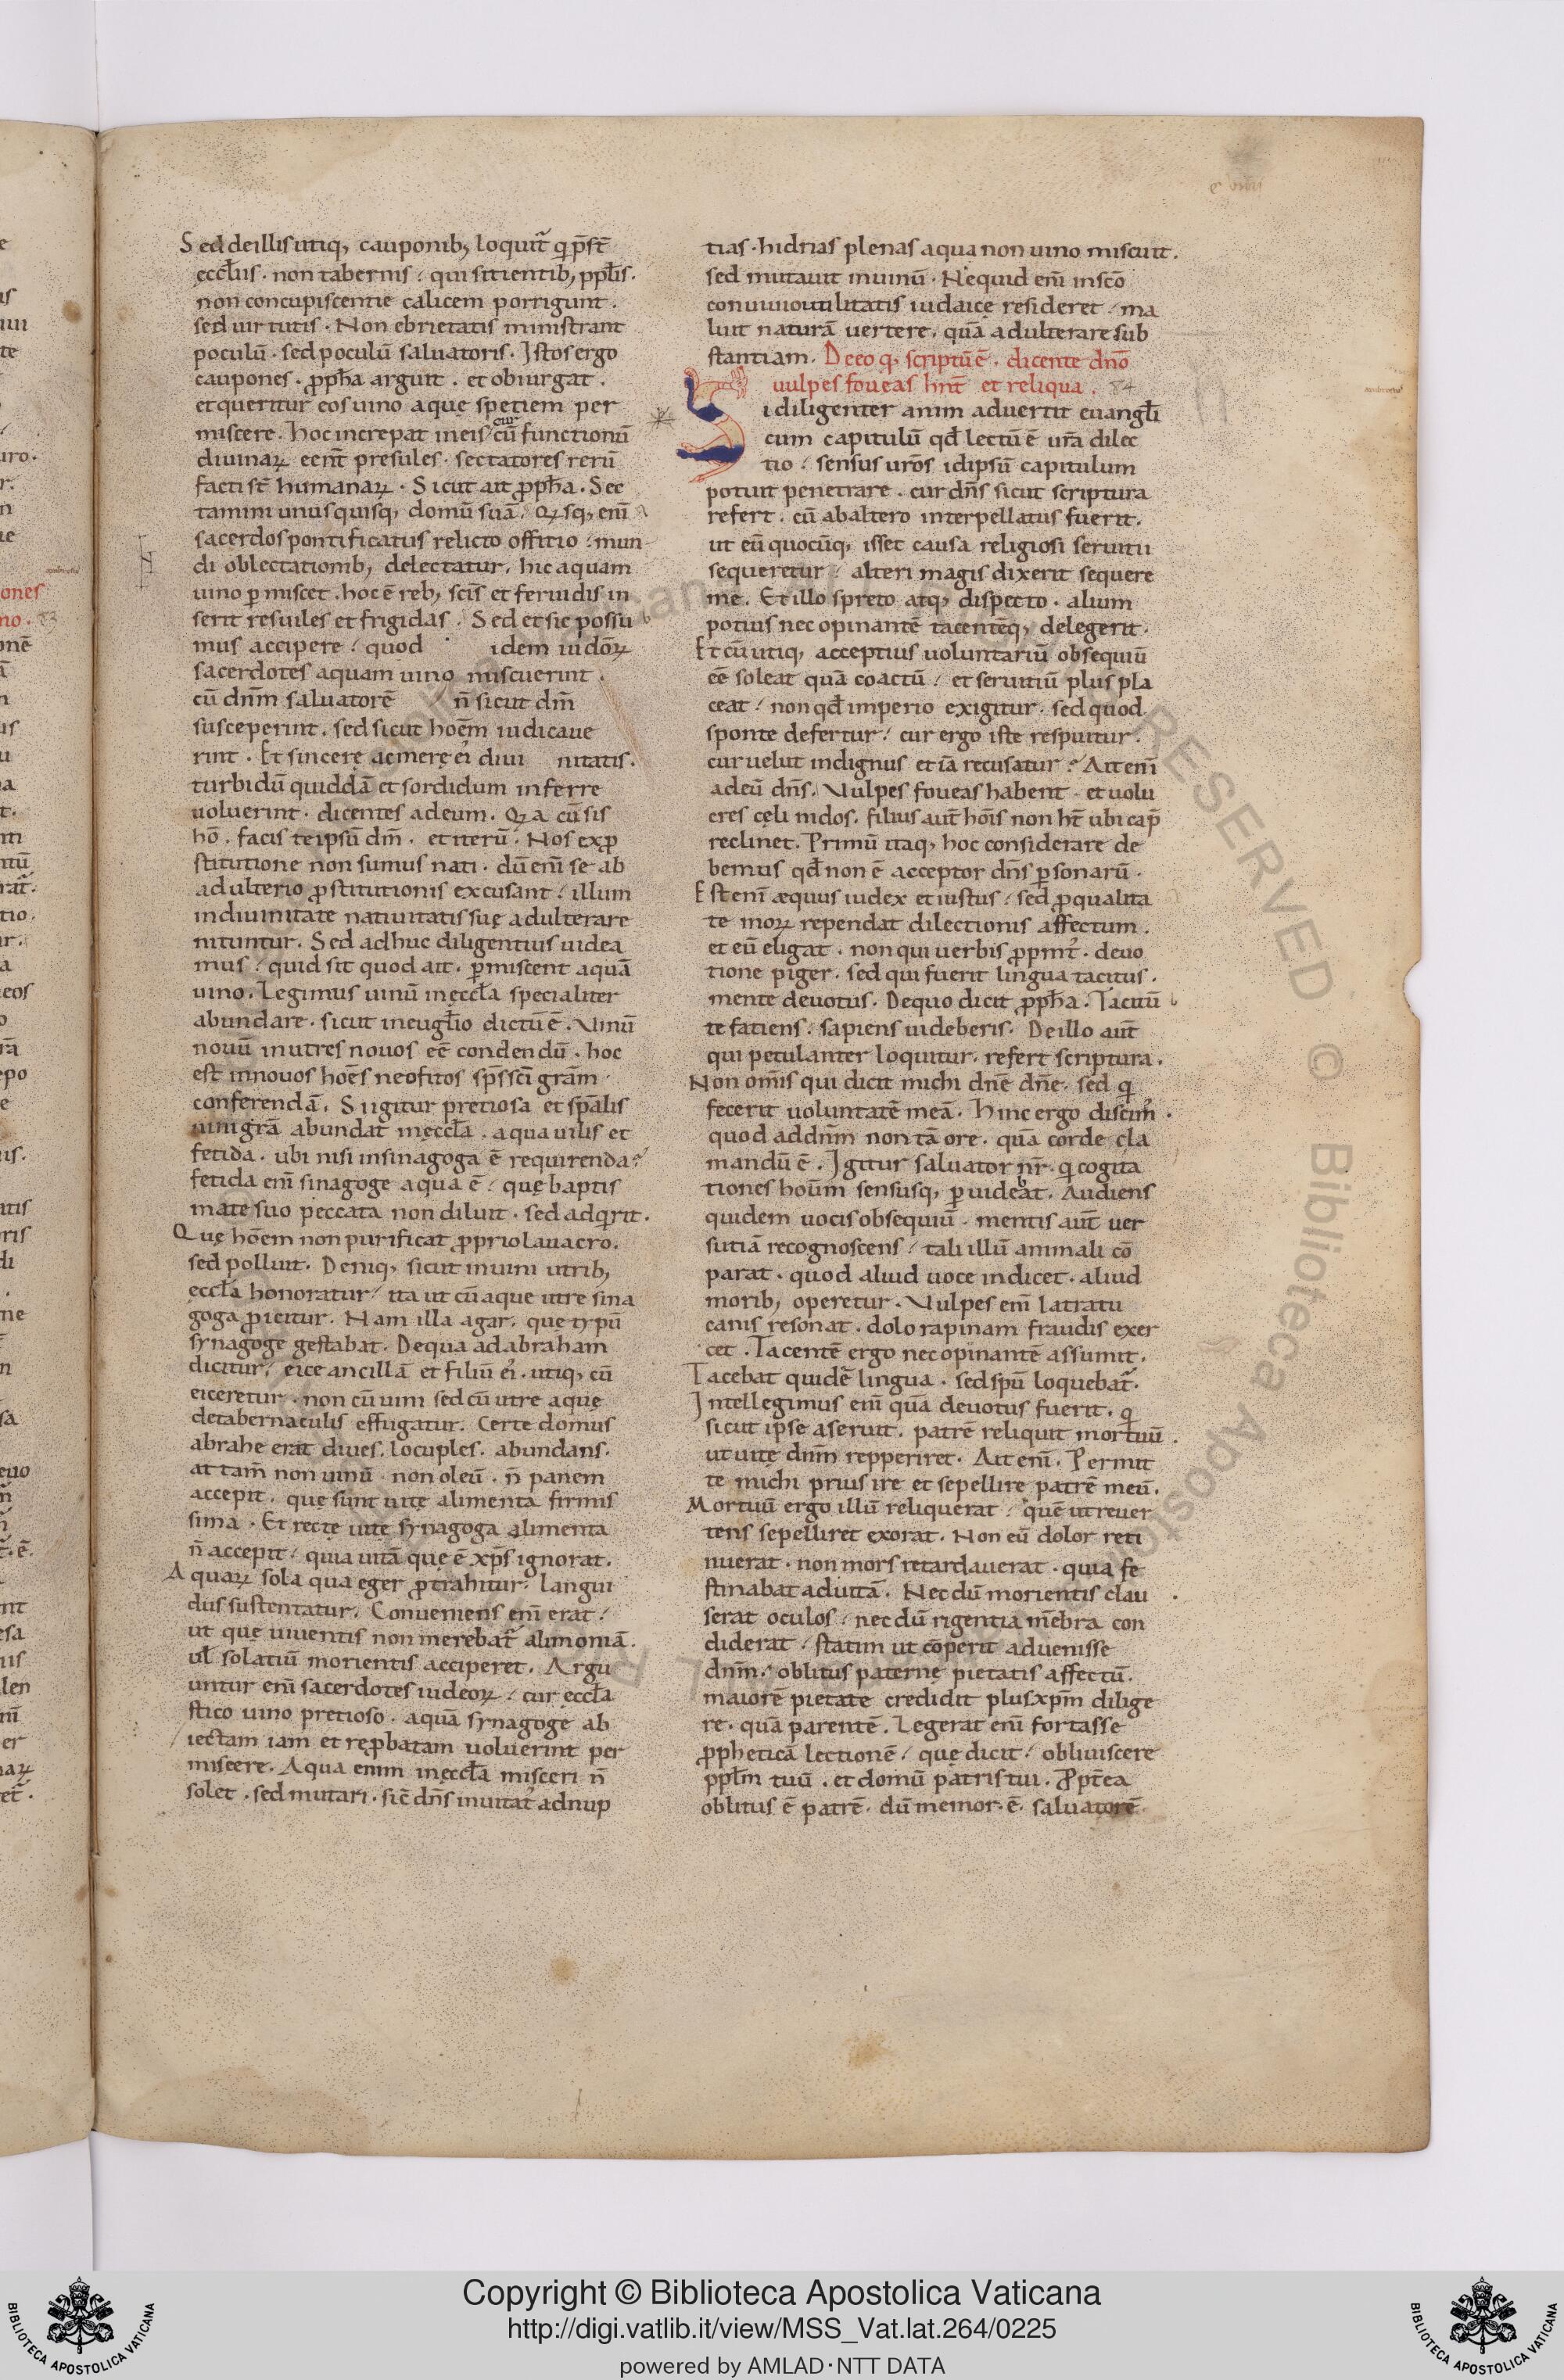 Sed de illis utiq; cauponib; loquit̃ q p̄st̄
ęccłiis · non tabernis ⁊ qui sitientib; pp̄lis ·
non concupiscentie calicem porrigunt ·
sed uirtutis · Non ebrietatis ministrant
poculū · sed poculū saluatoris · Istos ergo
caupones · ꝓph̄a arguit · et obiurgat ·
et queritur eos uino aquę spetiem per
miscere · hoc increpat in eis cur cū functionū
diuinaꝝ eēnt presules · sectatores rerū
facti st̄ humanaꝝ · Sicut ait ꝓph̄a · Sec
tamini unusquisq; domū suā · Qisq; enī
sacerdos pontificatus relicto offitio ⁊ mun
di oblectationib; delectatur · hic aquam
uino ꝑmiscet · hoc ē reb; scīs et feruidis in
serit res uiles et frigidas · Sed et sic possu
mus accipere ⁊ quod idem iudōꝝ
sacerdotes aquam uino miscuerint ·
cū dnm̄ saluatorē n̄ sicut dm̄
susceperint · sed sicut hoēm iudicaue
rint · Et sincerę ac merę ei' diui nitatis ·
turbidū quiddā et sordidum inferre
uoluerint · dicentes ad eum · Qa cū sis
hō · facis te ipsū dm̄ · et iterū · Nos ex ꝓ
stitutione non sumus nati · dū enī se ab
adulterio ꝓstitutionis excusant ⁊ illum
in diuinitate natiuitatis suę adulterare
nituntur · Sed adhuc diligentius uidea
mus ⁊ quid sit quod ait · ꝑmiscent aquā
uino · Legimus uinū in ęccła specialiter
abundare · sicut in eugłio dictū ē · Vinū
nouū in utres nouos eē condendū · hoc
est in nouos hoēs neofitos sp̄s scī grām
conferendā · Si igitur pretiosa et sp̄alis
uini grā abundat in ęccła · aqua uilis et
fetida · ubi nisi in sinagoga ē requirenda ?
fetida enī sinagogę aqua ē ⁊ quę baptis
mate suo peccata non diluit · sed adqrit ·
Quę hoēm non purificat ꝓprio lauacro ·
sed polluit · Deniq; sicut in uini utrib;
ęccła honoratur ⁊ ita ut cū aque utre sina
goga ꝓicitur · Nam illa agar · quę typū
synagogę gestabat · De qua ad abraham
dicitur ⁊ eice ancillā et filiū ei' · utiq; cū
eiceretur · non cū uini sed cū utre aquę
de tabernaculis effugatur · Certe domus
abrahe erat diues · locuples · abundans ·
at tam̄ non uinū · non oleū · n̄ panem
accepit · quę sunt uitę alimenta firmis
sima · Et recte uitę synagoga alimenta
n̄ accepit ⁊ quia uitā que ē xp̄s ignorat ·
Aquaꝝ sola qua eger ꝓtrahitur · langui
dus sustentatur · Conueniens enī erat ⁊
ut quę uiuentis non merebat̃ alimoniā ·
uł solatiū morientis acciperet · Argu
untur enī sacerdotes iudeoꝝ ⁊ cur ęccła
stico uino pretioso · aquā synagogę ab
iectam iam et reꝓbatam uoluerint per
miscere · Aqua enim in ęccła misceri n̄
solet · sed mutari · sic̄ dn̄s inuitat' ad nup
tias · hidrias plenas aqua non uino miscuit ·
sed mutauit in uinū · Ne quid enī in scō
conuiuio utilitatis iudaicę resideret ⁊ ma
luit naturā uertere · quā adulterare sub
stantiam · De eo q; scriptū ē · dicente dnō
uulpes foueas hn̄t et reliqua · 84
Si diligenter anim aduertit euangłi
cum capitulū qd̄ lectū ē urā dilec
tio ⁊ sensus urōs id ipsū capitulum
potuit penetrare · cur dn̄s sicut scriptura
refert · cū ab altero interpellatus fuerit ·
ut eū quocūq; isset causa religiosi seruitii
sequeretur ⁊ alteri magis dixerit sequere
me · Et illo spreto atq; dispecto · alium
potius nec opinantē tacentēq; delegerit ·
Et cū utiq; acceptius uoluntariū obsequiū
eē soleat quā coactū ⁊ et seruitiū plus pla
ceat ⁊ non qd̄ imperio exigitur · sed quod
sponte defertur ⁊ cur ergo iste respuitur ·
cur uelut indignus et iā recusatur ? Ait enī
ad eū dn̄s · Vulpes foueas habent · et uolu
cres cęli nidos · filius aut̄ hōis non ht̄ ubi cap̄
reclinet · Primū itaq; hoc considerare de
bemus qd̄ non ē acceptor dn̄s ꝑsonarū ·
Est enī æquus iudex et iustus ⁊ sed ꝓ qualita
te moꝝ rependat dilectionis affectum ·
et eū eligat · non qui uerbis ꝓpmt' · deuo
tione piger · sed qui fuerit lingua tacitus ·
mente deuotus · De quo dicit ꝓph̄a · Tacitū
te fatiens ⁊ sapiens uideberis · De illo aut̄
qui petulanter loquitur · refert scriptura ·
Non om̄is qui dicit michi dnē dnē · sed q
fecerit uoluntatē meā · Hinc ergo discim' ·
quod ad dnm̄ non tā ore · quā corde cla
mandū ē · Igitur saluator nr̄ · q cogita
tiones houm̄ sensusq; ꝑuidebat · Audiens
quidem uocis obsequiū · mentis aut̄ uer
sutiā recognoscens ⁊ tali illū animali cō
parat · quod aliud uoce indicet · aliud
morib; operetur · Vulpes enī latratu
canis resonat · dolo rapinam fraudis exer
cet · Tacentē ergo nec opinantē assumit ·
Tacebat quidē lingua · sed spū loquebat̃ ·
Intellegimus enī quā deuotus fuerit · q
sicut ipse aseruit · patrē reliquit mortuū ·
ut uitę dnm̄ repperiret · Ait enī · Permit
te michi prius ire et sepellire patrē meū ·
Mortuū ergo illū reliquerat ⁊ quē ut reuer
tens sepelliret exorat · Non eū dolor reti
nuerat · non mors retardauerat · quia fe
stinabat ad uitā · Necdū morientis clau
serat oculos ⁊ necdū rigentia mēbra con
diderat ⁊ statim ut cōperit aduenisse
dnm̄ ⁊ oblitus paternę pietatis affectū ·
maiorē pietate credidit plus xpm̄ dilige
re · quā parentē · Legerat enī fortasse
ꝓpheticā lectionē ⁊ quę dicit ⁊ obliuiscere
ppłm tuū · et domū patris tui · Ꝓpt̄ea
oblitus ē patrē · dū memor · ē · saluatorē
Copyright © Biblioteca Apostolica Vaticana
http://digi.vatlib.it/view/MSS_Vat.lat.264/0225
powered by AMLAD·NTT DATA
BIBLIOTECA APOSTOLICA VATICANA
BIBLIOTECA APOSTOLICA VATICANA